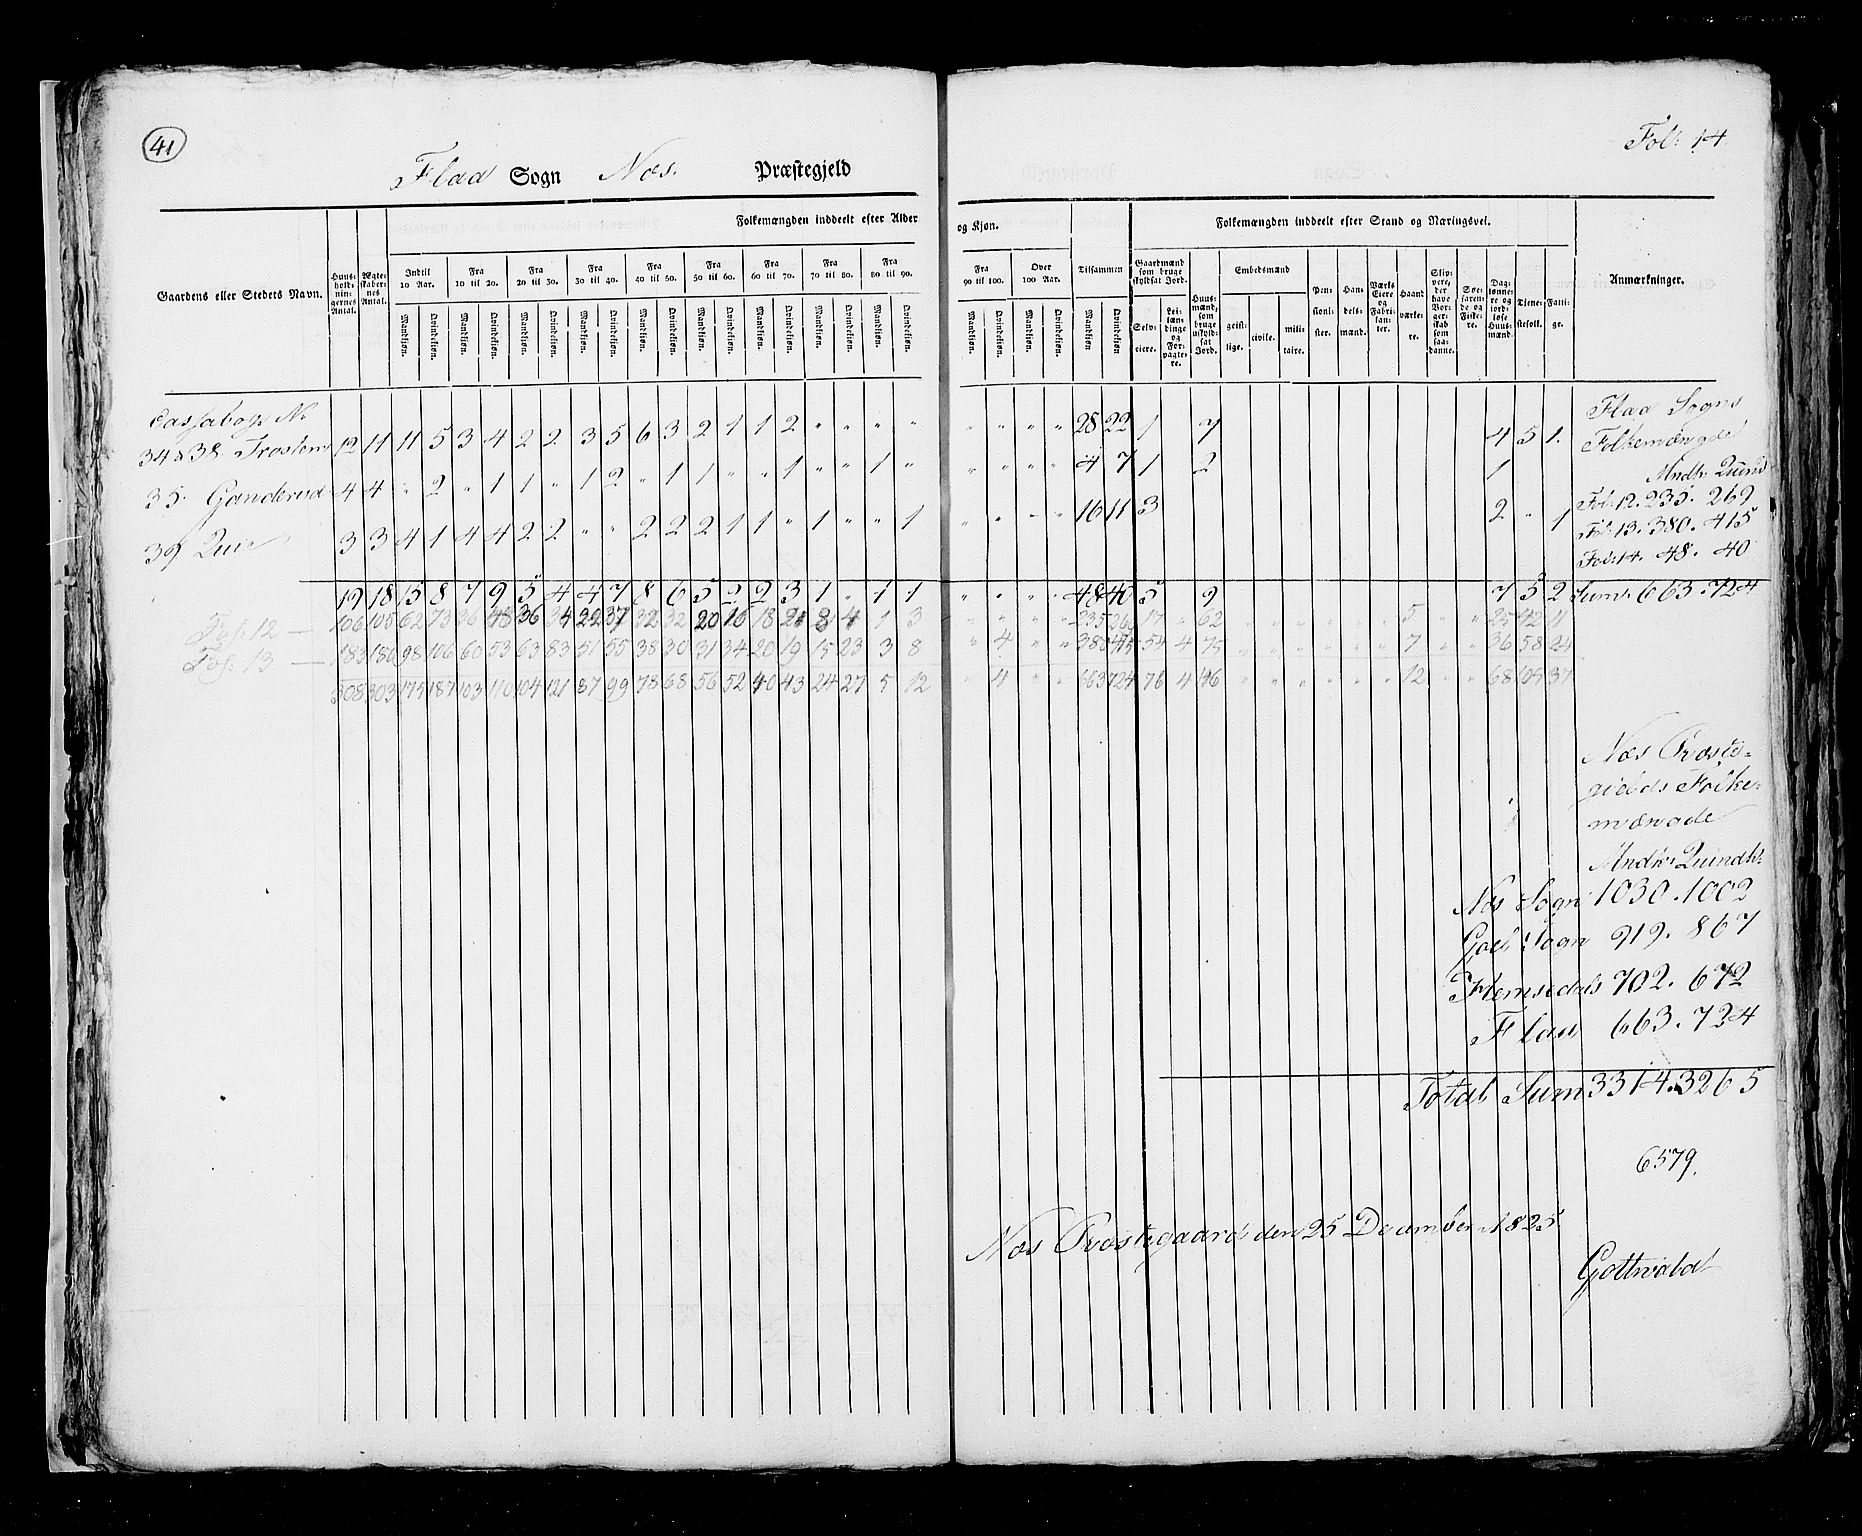 41
Fol: 14
Flaa Sogn Næs Præstegjeld
Folkemængden inddeelt efter Alder og Kjøn.
Folkemængden inddeelt efter Stand og Næringsvei.
Gaardens eller Stedets Navn.
Huus-holdningernes Antal.
Ægteskabernes Antal.
Indtil 10 Aar.
Fra 10 til 20.
Fra 20 til 30.
Fra 30 til 40.
Fra 40 til 50.
Fra 50 til 60.
Fra 60 til 70.
Fra 70 til 80.
Fra 80 til 90.
Fra 90 til 100.
Over 100 Aar.
Tilsammen
Gaardmænd som bruge skyldsat Jord.
Huusmænd, som bruge uskyldsat Jord.
Embedsmænd
Pensionister.
Handelsmænd.
Værks Eiere og Fabrikanter.
Haandværkere.
Søefarende og Fiskere.
Tjenestefolk.
Fattige.
Anmærkninger.
Mandkjøn. Qvindekjøn.
Selveiere.
geistlige. civile. militaire.
34 & 38 12 11 11 5 3 4 2 2 3 5 6 3 2 1 1 2 " " " " " " " " 28 22 1 7 4 5 1.
35 4 4 " 2 " 1 1 " 1 2 " 1 1 " " 1 " " 1 " " " " " 4 7 1 2 1
39 3 3 4 1 4 4 2 2 " " 2 2 2 1 1 " 1 " " 1 " " " " 16 11 3 2 " 1
19 18 15 8 7 9 5 4 4 7 8 6 5 2 2 3 1 " 1 1 " " " " 48 40 5 9 7 5 2
Fol: 12 — 106 105 62 73 36 48 36 34 22 37 32 32 20 16 18 21 8 4 1 3 " " " " 235 269 17 " 62 5 25 42 11
Fol: 13 — 183 180 98 106 60 53 63 83 51 55 38 30 31 34 20 19 15 23 3 8 " 4 " " 380 415 54 4 75 7 36 58 24
308 303 175 187 103 110 104 121 87 99 78 68 56 52 40 43 24 27 5 12 " 4 " " 663 724 76 4 146 12 68 105 37
Flaa Sogns
Folkemængde
Fol: 12. 235. 269
Fol: 13. 380. 415
Fol: 14. 48. 40
Sum: 663. 724
Næs Præste-
gields Folke-
mængde
Næs Sogn 1030. 1002
Goel Sogn 919. 867
Hemsedals 702. 672
Flaa 663. 724
Total Sum 3314. 3265
6579.
Næs Præstegaard den 25 December 1825
Gottwald